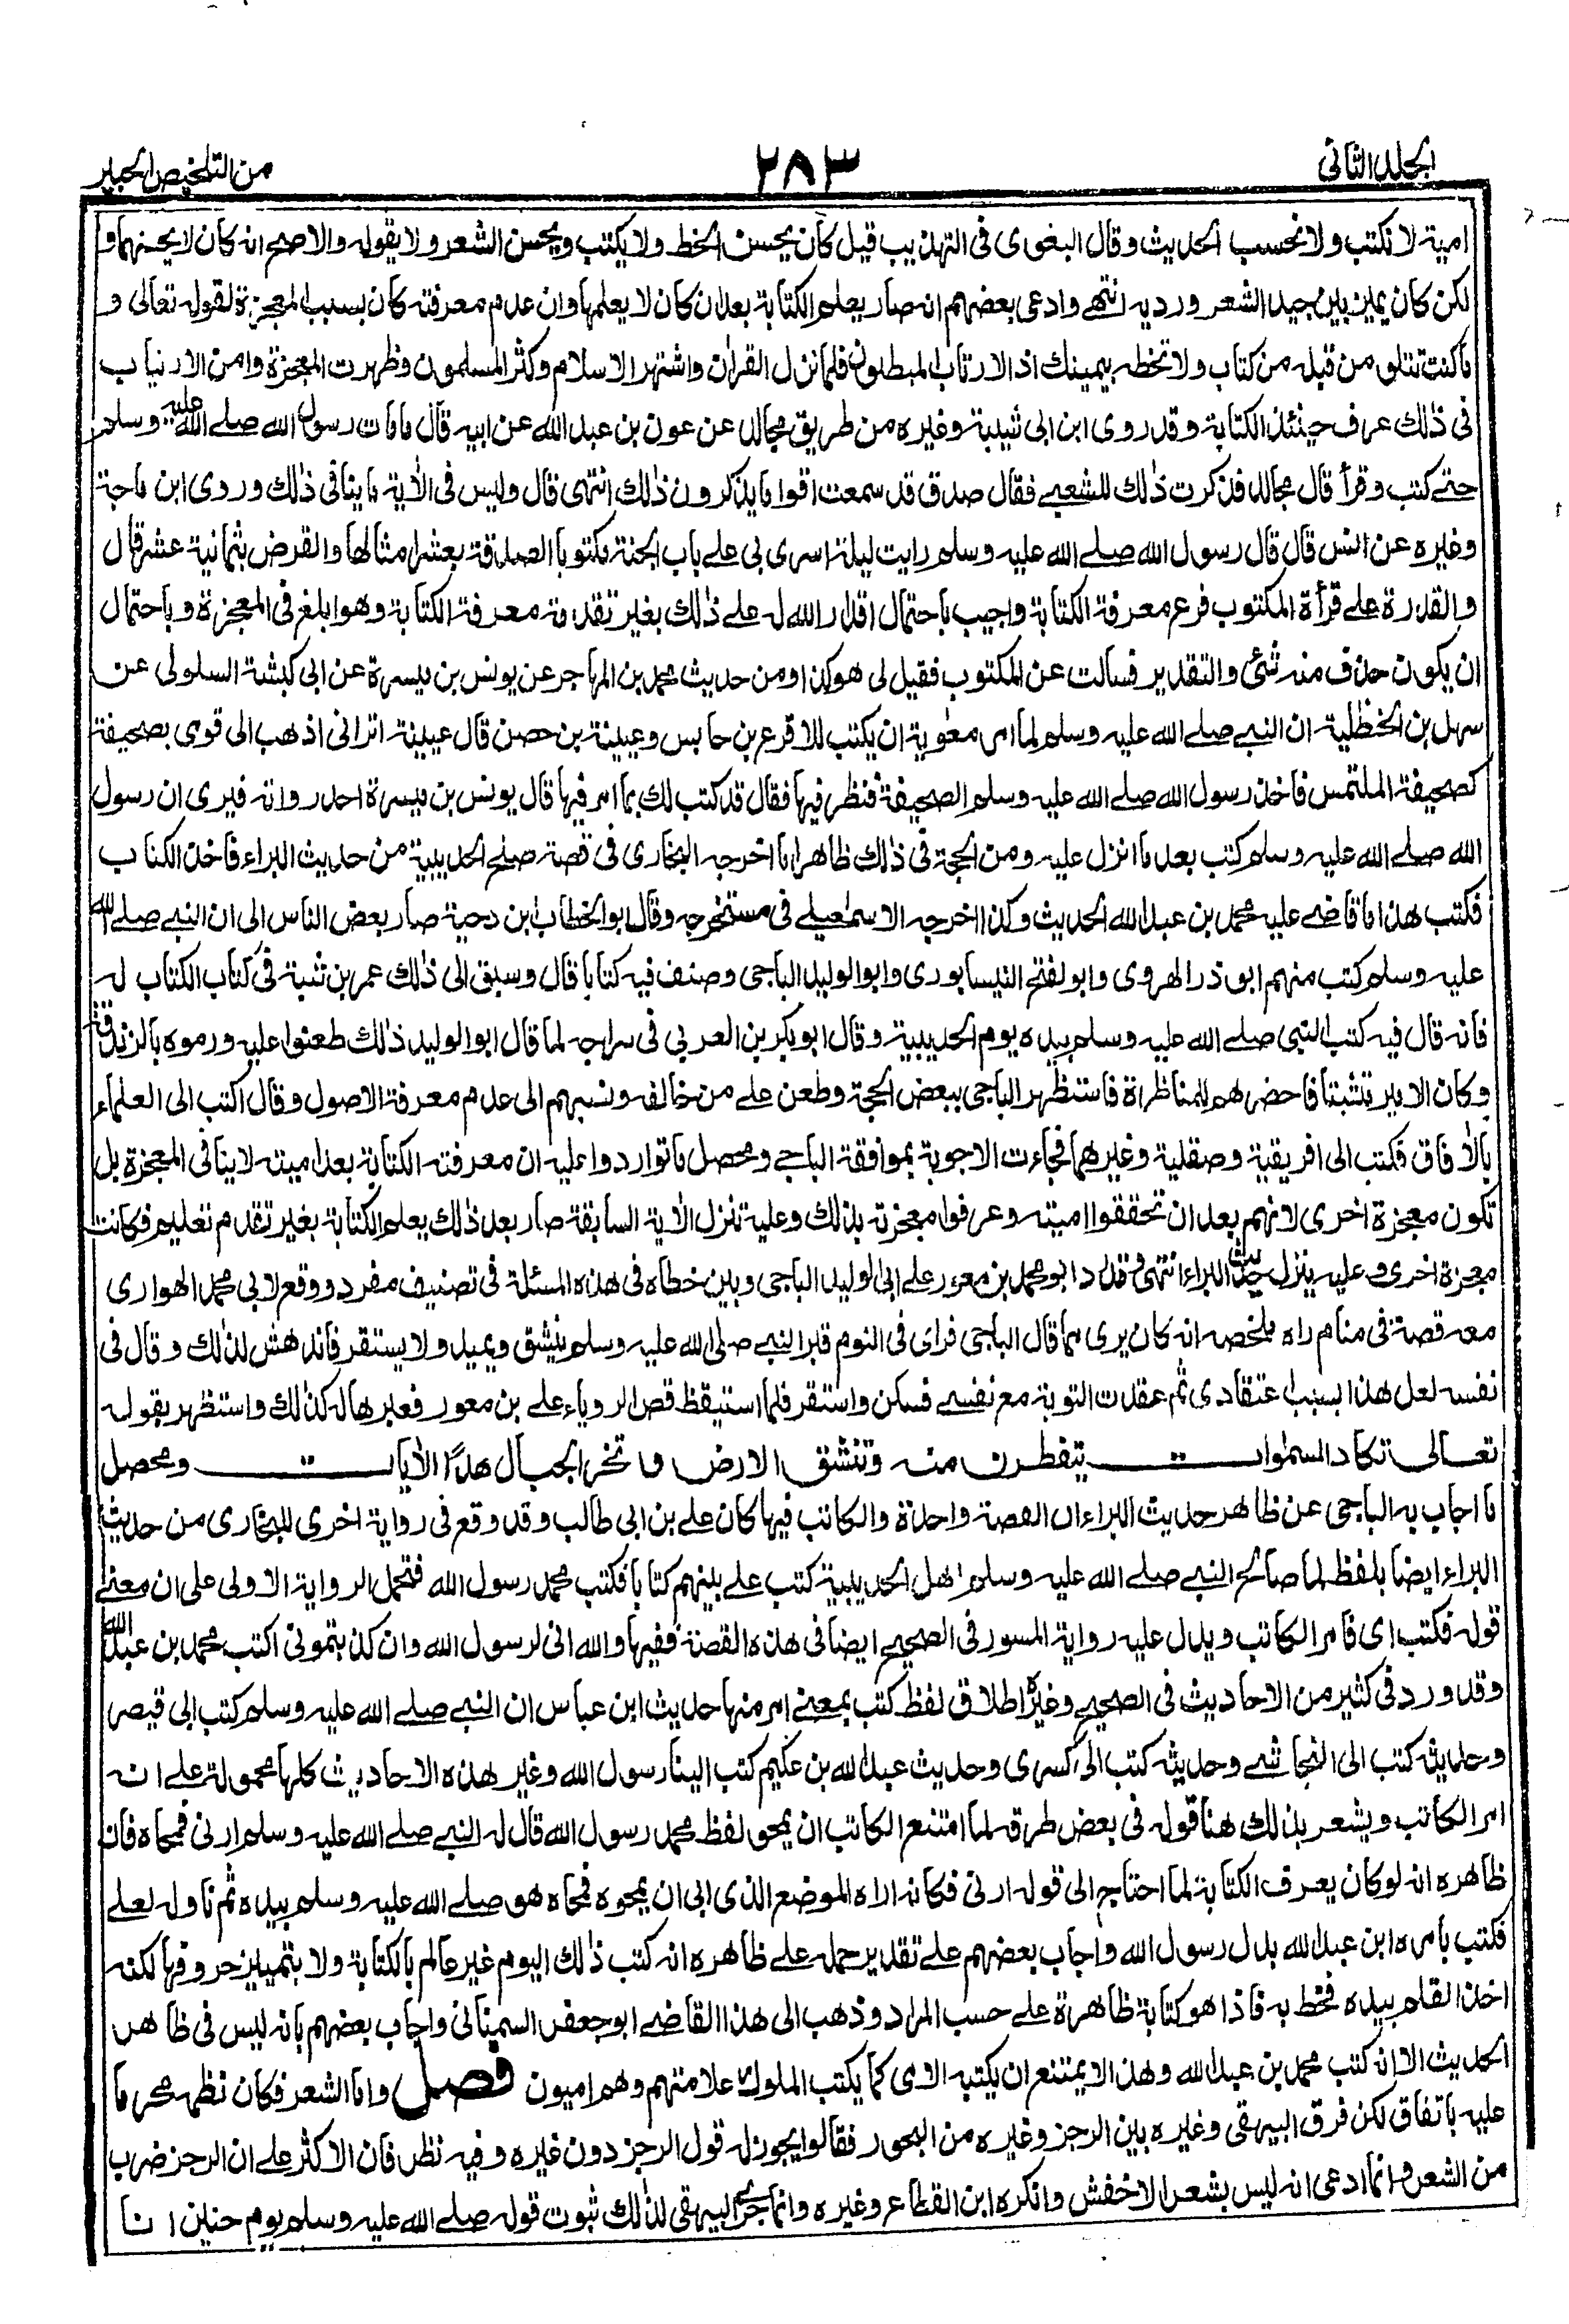 الجلد الثاني ٢٨٣ من التلخيص الحبير
امية لا نكتب ولا نحسب الحديث وقال البغوى فى التهذيب قيل كان يحسن الخط ولا يكتب ويحسن الشعر ولا يقوله والاصح انه كان لا يحسنهما و
لكن كان يميز بين جيد الشعر ورديه انتهے وادعى بعضهم انه صار يعلم الكتابة بعد ان كان لا يعلمها وان عدم معرفته كان بسبب المعجزة لقوله تعالى و
ما كنت تتلو من قبله من كتاب ولا تخطه بيمينك اذا لارتاب المبطلون فلما نزل القرآن واشتهر الاسلام وكثر المسلمون وظهرت المعجزة وامن الارتياب
فى ذٰلك عرف حينئذ الكتابة وقد روى ابن ابى شيبة وغيره من طريق مجالد عن عون بن عبد الله عن ابيه قال ما مات رسول الله صلے الله عليه وسلم
حتے كتب وقرأ قال مجالد فذكرت ذٰلك للشعبے فقال صدق قد سمعت اقواما يذكرون ذٰلك انتهى قال وليس فى الاٰية ما ينافى ذٰلك وروى ابن ماجة
وغيره عن انس قال قال رسول الله صلے الله عليه وسلم رايت ليلة اسرى بى علے باب الجنة مكتوبا الصدقة بعشر امثالها والقرض بثمانية عشر قال
والقدرة علے قرأة المكتوب فرع معرفة الكتابة واجيب باحتمال اقدار الله له علے ذٰلك بغير تقدمة معرفة الكتابة وهو ابلغ فى المعجزة وباحتمال
ان يكون حذف منه شئ والتقدير فسالت عن المكتوب فقيل لى هو كذا ومن حديث محمد بن المهاجر عن يونس بن ميسرة عن ابى كبشة السلولى عن
سهل بن الحنظلية ان النبے صلے الله عليه وسلم لما امر معٰوية ان يكتب للاقرع بن حابس وعيينة بن حصن قال عيينة اترانى اذهب الى قومى بصحيفة
كصحيفة الملتمس فاخذ رسول الله صلے الله عليه وسلم الصحيفة فنظر فيها فقال قد كتب لك بما امر فيها قال يونس بن ميسرة احد رواته فيرى ان رسول
الله صلے الله عليه وسلم كتب بعد ما انزل عليه ومن الحجة فى ذٰلك ظاهرا ما اخرجه البخارى فى قصة صلح الحديبية من حديث البراء فاخذ الكتاب
فكتب هذا ما قاضے عليه محمد بن عبد الله الحديث وكذا اخرجه الاسمٰعيلے فى مستخرجه وقال ابو الخطاب ابن دحية صار بعض الناس الى ان النبے صلے الله
عليه وسلم كتب منهم ابو ذر الهروى وابو لفتح النيسابورى وابو الوليد الباجى وصنف فيه كتابا قال وسبق الى ذٰلك عمر بن شبة فى كتاب الكتاب له
فانه قال فيه كتب النبى صلے الله عليه وسلم بيده يوم الحديبية وقال ابو بكر بن العربى فى سراجه لما قال ابو الوليد ذٰلك طعنوا عليه ورموه بالزندقة
وكان الامير متثبتا فاحضرهم للمناظراة فاستظهر الباجى ببعض الحجة وطعن علے من خالفه ونسبهم الى عدم معرفة الاصول وقال اكتب الى العلماء
بالاٰفاق فكتب الى افريقية وصقلية وغيرهما فجاءت الاجوبة بموافقة الباجے ومحصل ما تواردوا عليه ان معرفته الكتابة بعد اميته لا ينافى المعجزة بل
تكون معجزة اخرى لانهم بعد ان تحققوا اميته وعرفوا معجزته بذلك وعلية تنزل الاٰية السابقة صار بعد ذٰلك يعلم الكتابة بغير تقدم تعليم فكانت
معجزة اخرى وعليه ينزل حديث البراء انتهى وقد رد ابو محمد بن معور علے ابى الوليد الباجى وبين خطاه فى هذه المسئلة فى تصنيف مفرد ووقع لابى محمد الهوارى
معه قصة فى منام راه ملخصه انه كان يرى مما قال الباجى فراى فى النوم قبر النبے صلى الله عليه وسلم ينشق ويميد ولا يستقر فاندهش لذٰلك وقال فى
نفسه لعل هذا بسبب اعتقادى ثم عقدت التوبة مع نفسے فسكن واستقر فلما استيقظ قص الروياء علے بن معور فعبرها له كذٰلك واستظهر بقوله
تعالى تكاد السمٰوات يتفطرن منه وتنشق الارض وتخر الجبال هدًّا الاٰيات ومحصل
ما اجاب به الباجى عن ظاهر حديث البراء ان القصة واحدة والكاتب فيها كان علے بن ابى طالب وقد وقع فى رواية اخرى للبخارى من حديث
البراء ايضا بلفظ لما صالح النبے صلے الله عليه وسلم اهل الحديبية كتب علے بينهم كتابا فكتب محمد رسول الله فتحمل الرواية الاولى على ان معنے
قوله فكتب اى فامر الكاتب ويدل عليه رواية المسور فى الصحيح ايضا فى هذه القصة ففيها والله انى لرسول الله وان كذبتمونى اكتب محمد بن عبد الله
وقد ورد فى كثير من الاحاديث فى الصحيح وغيره اطلاق لفظ كتب بمعنے امر منها حديث ابن عباس ان النبے صلے الله عليه وسلم كتب الى قيصر
وحديثه كتب الى النجاشے وحديثه كتب الى كسرى وحديث عبد الله بن عكيم كتب الينا رسول الله وغير هذه الاحاديث كلها محمولة علے انه
امر الكاتب ويشعر بذلك هنا قوله فى بعض طرقه لما امتنع الكاتب ان يمحو لفظ محمد رسول الله قال له النبے صلے الله عليه وسلم ارنى فمحاه فان
ظاهره انه لو كان يعرف الكتابة لما احتاج الى قوله ارنى فكانه اراه الموضع الذى ابى ان يمحوه فمحاه هو صلے الله عليه وسلم بيده ثم ناوله لعلے
فكتب بامره ابن عبد الله بدل رسول الله واجاب بعضهم علے تقدير حمله علے ظاهره انه كتب ذٰلك اليوم غير عالم بالكتابة ولا بتمييز حروفها لكنه
اخذ القلم بيده فخط به فاذا هو كتابة ظاهرة علے حسب المراد وذهب الى هذا القاضے ابو جعفر السمنانى واجاب بعضهم بانه ليس فى ظاهر
الحديث الا انه كتب محمد بن عبد الله وهذا لا يمتنع ان يكتبه الامى كما يكتب الملوك علامتهم وهم اميون فصل واما الشعر فكان نظمه محرما
عليه باتفاق لكن فرق البيهقى وغيره بين الرجز وغيره من البحور فقالوا يجوز له قول الرجز دون غيره وفيه نظر فان الاكثر علے ان الرجز ضرب
من الشعر وانما ادعى انه ليس بشعر الاخفش وانكره ابن القطاع وغيره وانما جرى البيهقى لذٰلك ثبوت قوله صلے الله عليه وسلم يوم حنين انا